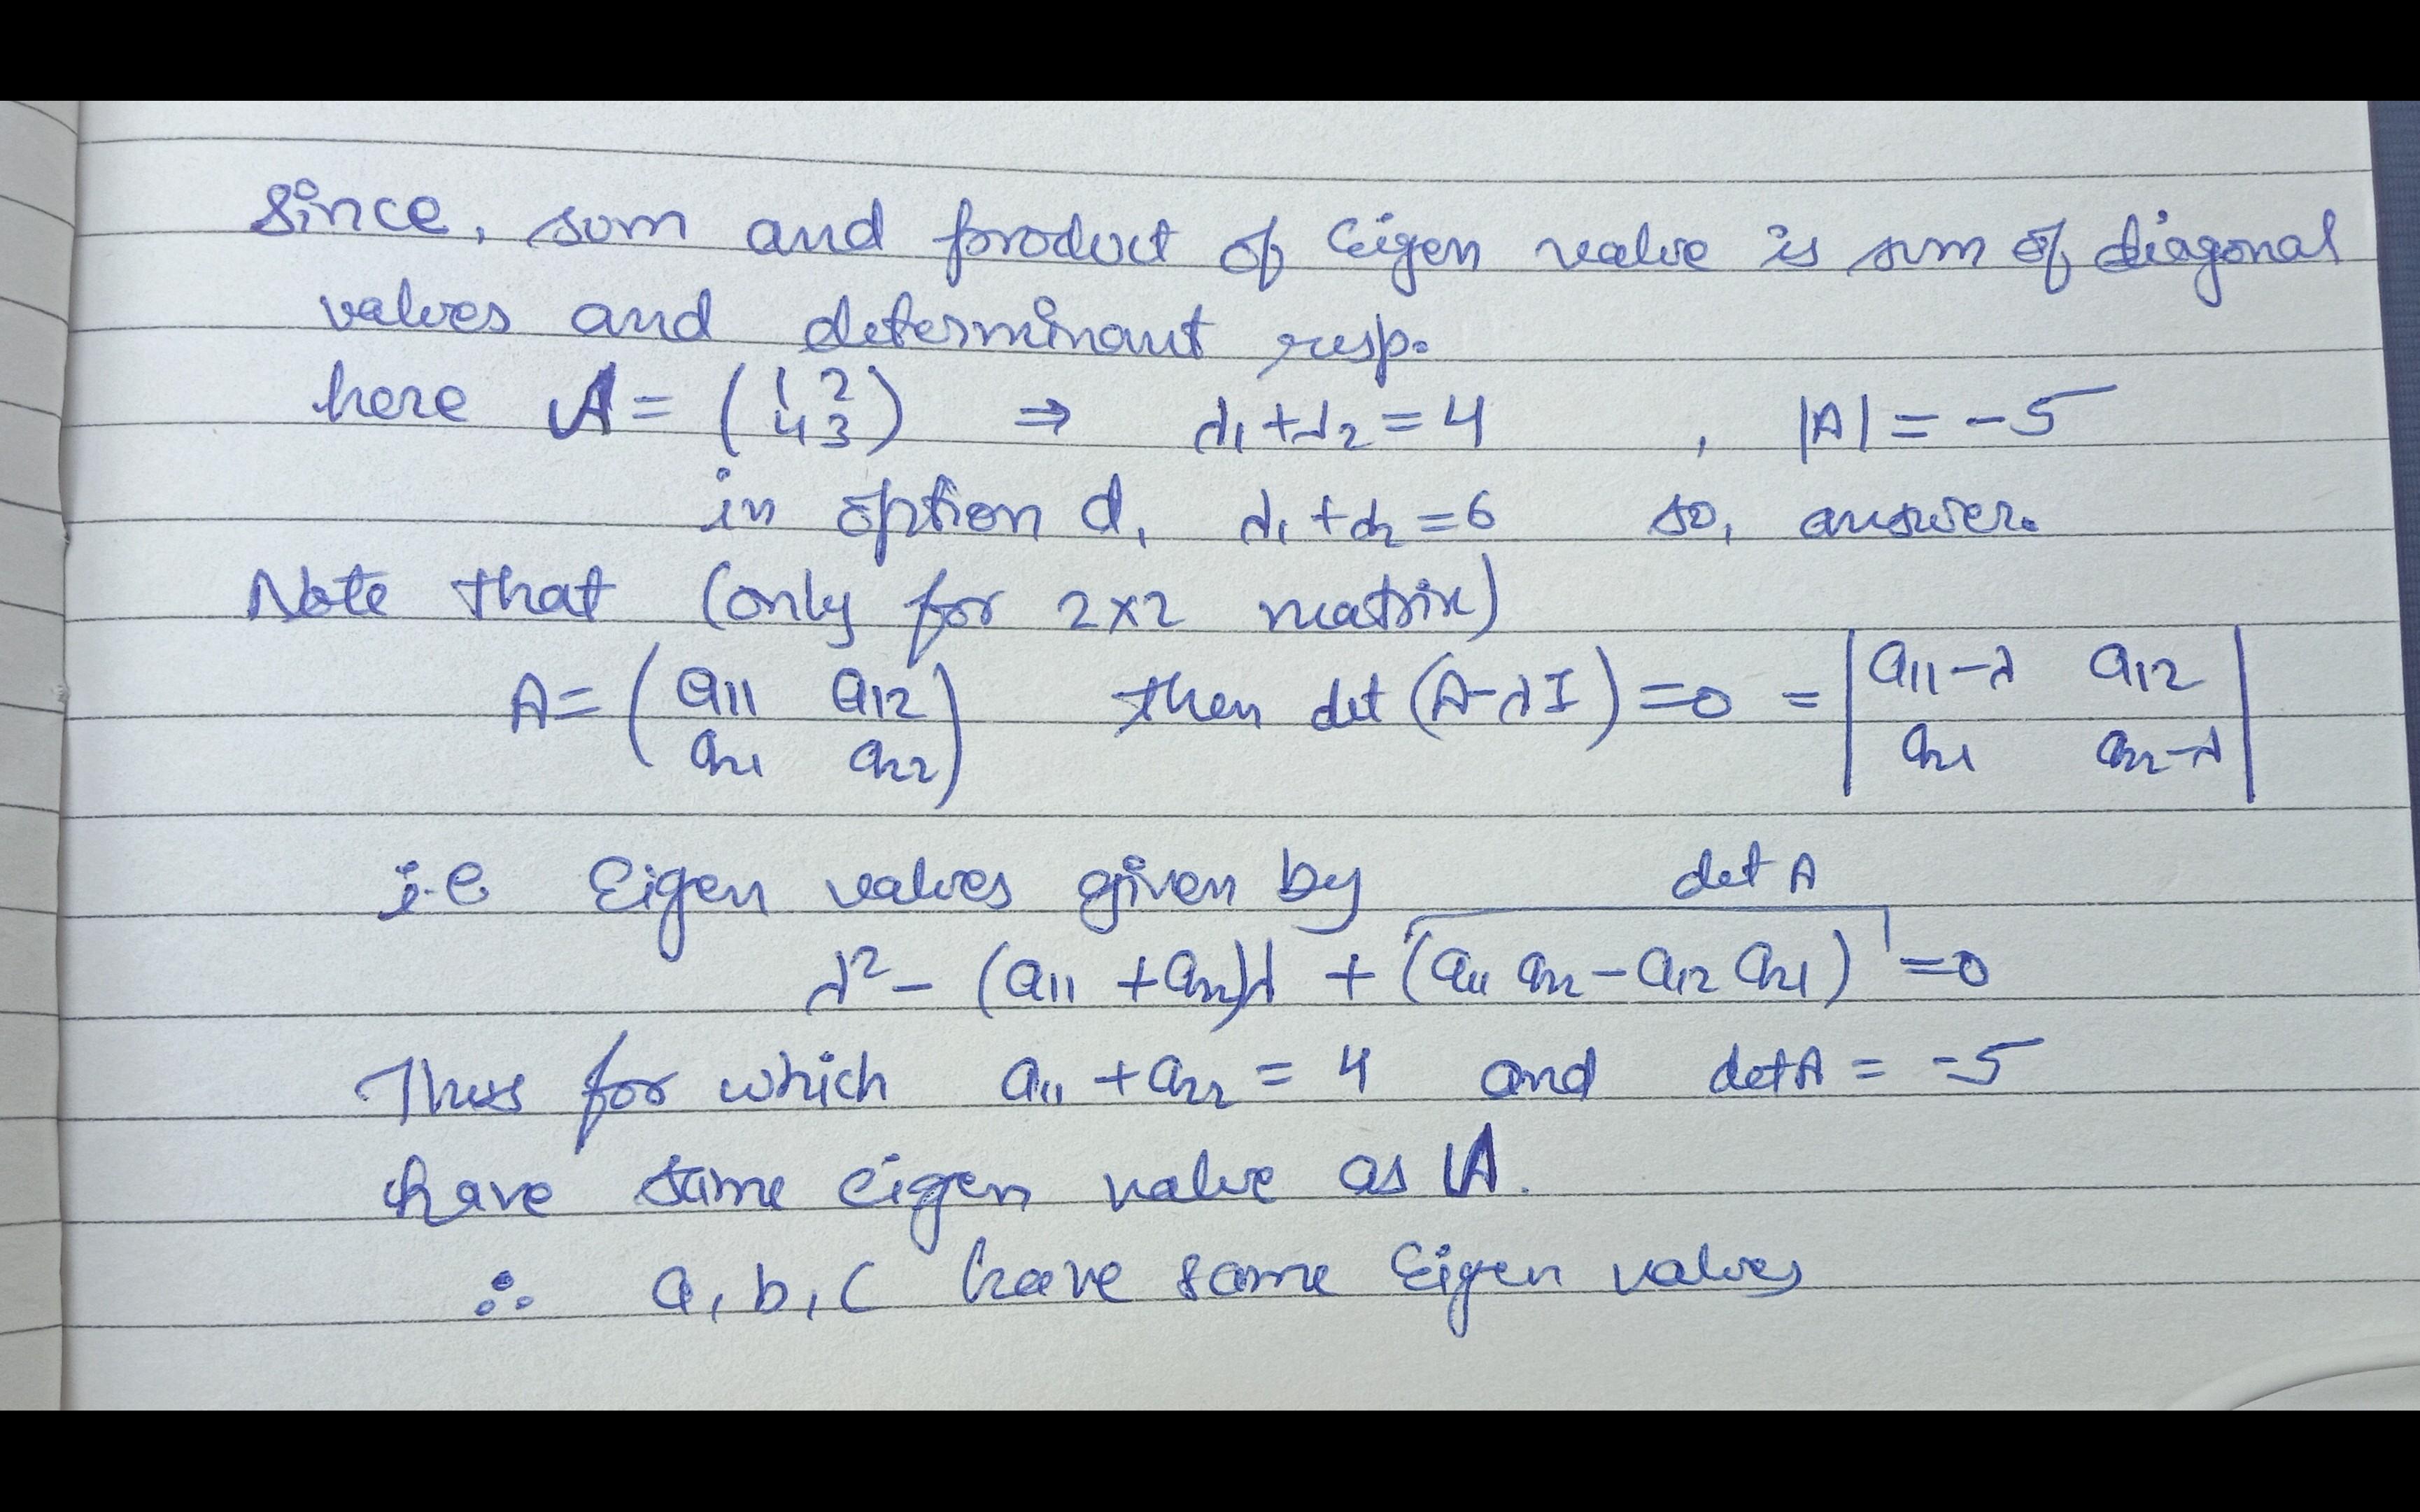 Since, sum and product of Eigen value is sum of diagonal
values and determinant resp.
here A = (1 2 4 3) ⇒ λ1+λ2=4 , |A| = -5
in option d, λ1+λ2=6 so, answer.
Note that (only for 2x2 matrix)
A= (a11 a12 a21 a22) then det (A-λI)=0 = |a11-λ a12 a21 a22-λ|
i.e Eigen values given by
det A
λ² - (a11 + a22)λ + (a11 a22 - a12 a21) =0
Thus for which a11 + a22 = 4 and detA = -5
have same eigen value as A.
∴ a, b, c have same Eigen values